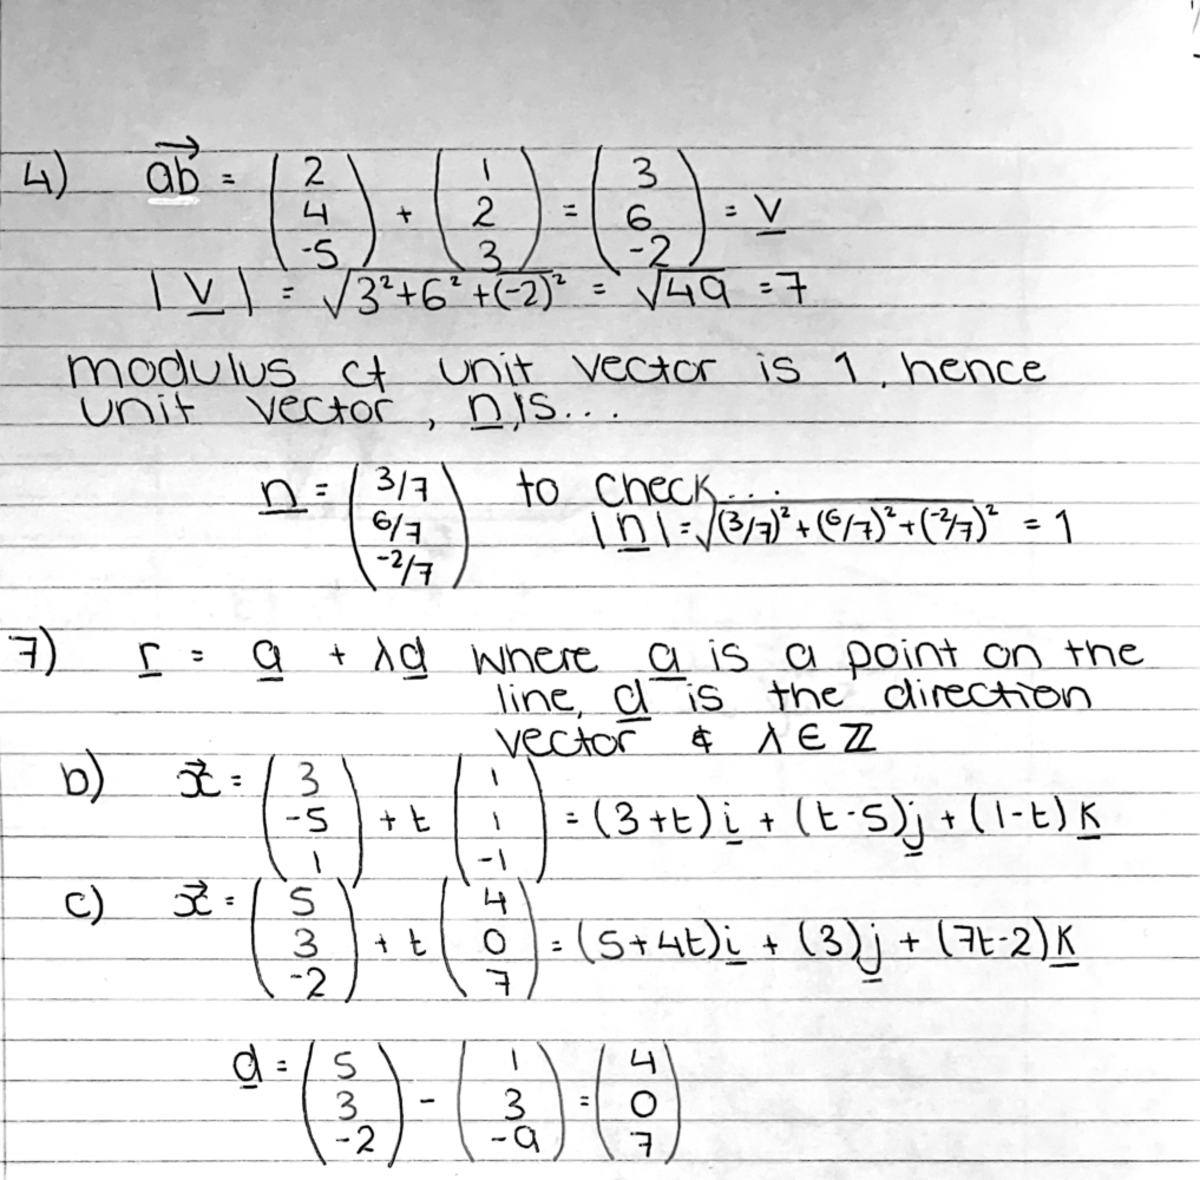 4) ab→ = (2 4 -5) + (1 2 3) = (3 6 -2) = v
|v| = √3²+6²+(-2)² = √49 = 7
modulus of unit vector is 1, hence
unit vector, n, is...
n = (3/7 6/7 -2/7) to check...
|n| = √(3/7)²+(6/7)²+(-2/7)² = 1
7) r = a + λd where a is a point on the
line, d is the direction
vector & λ ∈ ℤ
b) x→ = (3 -5 1) + t (1 1 -1) = (3+t)i + (t-5)j + (1-t)k
c) x→ = (5 3 -2) + t (4 0 7) = (5+4t)i + (3)j + (7t-2)k
d = (5 3 -2) - (1 3 -9) = (4 0 7)